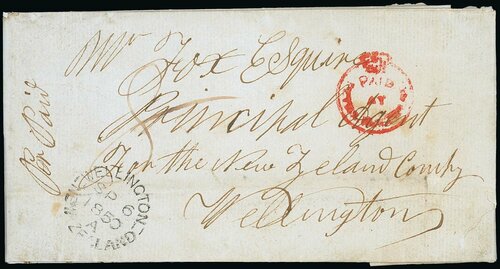 Wm Fox Esquire
Principal Agent
For the New Zeland Compy
Wellington
Pre Paid
PAID
AT
WELLINGTON
NEW ZEALAND
SP 6
1850
A